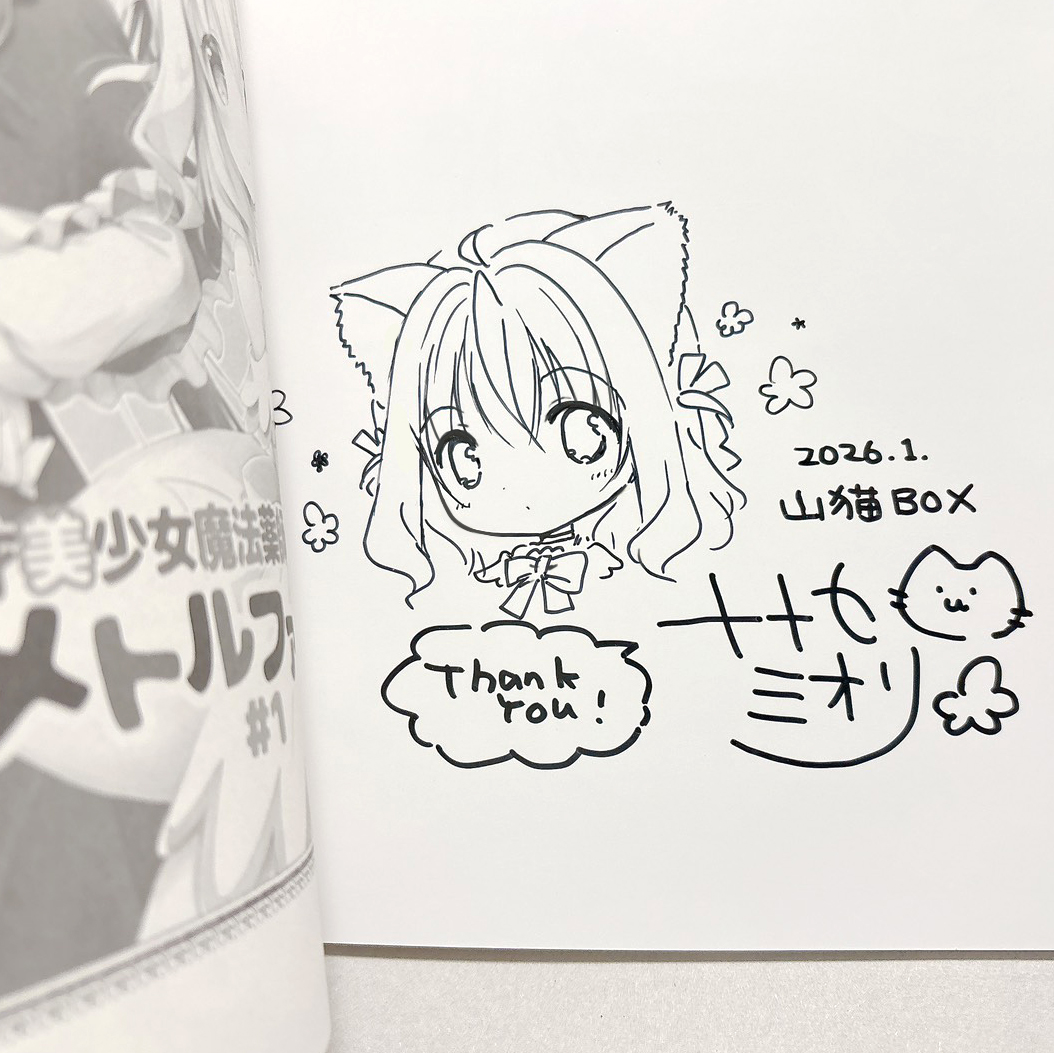 美少女魔法薬
メトルフ
#1
2026.1.
山猫BOX
ミオリ
Thank
You!